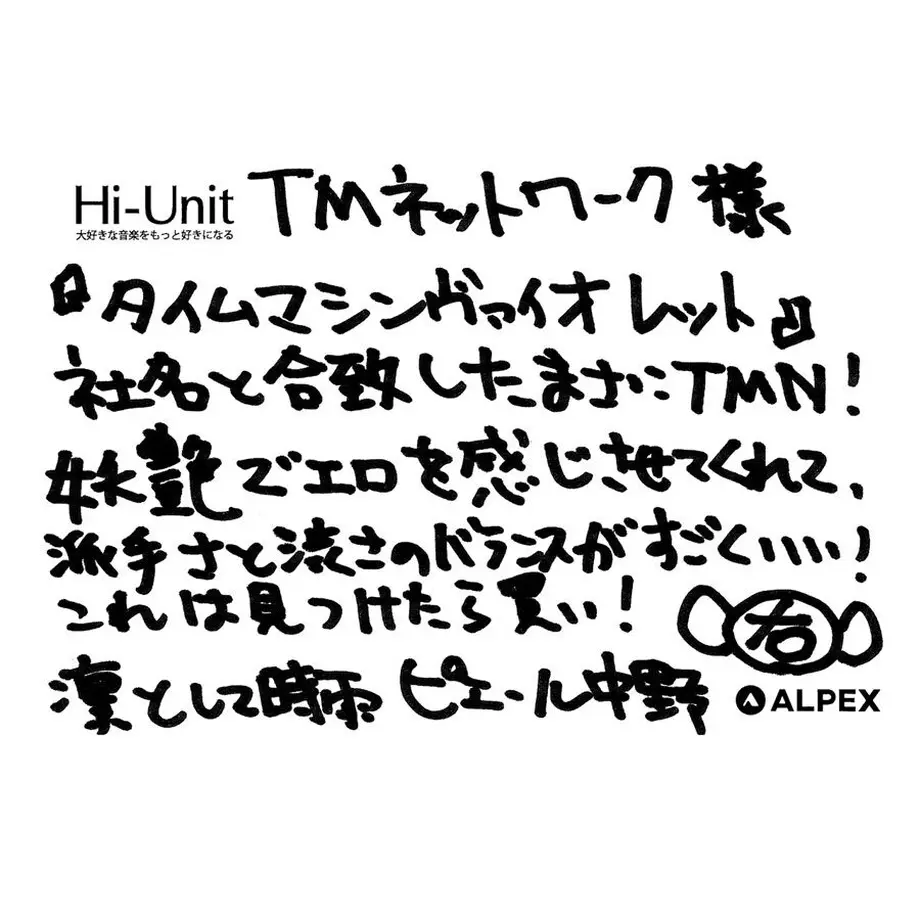 Hi-Unit
大好きな音楽をもっと好きになる
TMネットワーク 様
『タイムマシンヴァイオレット』
社名と合致したまさにTMN!
妖艶でエロを感じさせてくれて、
派手さと渋さのバランスがすごくいいい!
これは見つけたら買い!
右
凛として時雨 ピエール中野
ALPEX